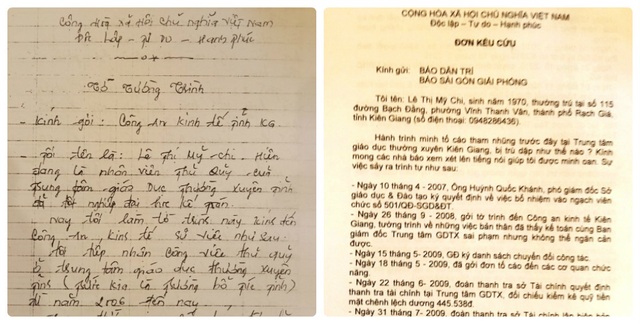 Cộng Hoà Xã Hội Chủ Nghĩa Việt Nam
Độc Lập - Tự Do - Hạnh Phúc
Tờ Tường Trình
- Kính gởi: Công An Kinh tế tỉnh KG
- Tôi tên là: Lê Thị Mỹ Chi. Hiện
đang là nhân viên thủ quỹ của
Trung tâm giáo dục thường xuyên tỉnh
nay tôi làm tờ trình này kính đến
Công An kinh tế sự việc như sau:
tôi tiếp nhận công việc thủ quỹ
ở trung tâm giáo dục thường xuyên
từ năm 2006 đến nay
CỘNG HÒA XÃ HỘI CHỦ NGHĨA VIỆT NAM
Độc lập - Tự do - Hạnh phúc
ĐƠN KÊU CỨU
Kính gửi: BÁO DÂN TRÍ
BÁO SÀI GÒN GIẢI PHÓNG
Tôi tên: Lê Thị Mỹ Chi, sinh năm 1970, thường trú tại số 115
đường Bạch Đằng, phường Vĩnh Thanh Vân, thành phố Rạch Giá,
tỉnh Kiên Giang (số điện thoại: 0948286436)
Hành trình mình tố cáo tham nhũng trước đây tại Trung tâm
giáo dục thường xuyên Kiên Giang, bị trù dập như thế nào ? Kính
mong các nhà báo xem xét lên tiếng nói giúp tôi được minh oan. Sự
việc sảy ra trình tự như sau:
- Ngày 10 tháng 4 - 2007, Ông Huỳnh Quốc Khánh, phó giám đốc Sở
giáo dục & Đào tạo ký quyết định về việc bổ nhiệm vào ngạch viên
chức số 501/QĐ-SGD&ĐT.
- Ngày 26 tháng 9 - 2008, gởi tờ trình đến Công an kinh tế Kiên
Giang, tường trình về những việc bản thân đã thấy kế toán cùng Ban
giám đốc Trung tâm GDTX sai phạm nhưng không thể ngăn cản
được.
- Ngày 15 tháng 5- 2009, GĐ ký danh sách chuyển đổi công tác.
- Ngày 18 tháng 5 -2009, đã gởi đơn tố cáo đến các cơ quan chức
năng.
- Ngày 22 tháng 6- 2009, đoàn thanh tra sở Tài chính quyết định
thanh tra tài chính tại Trung tâm GDTX, đối chiếu kiểm kê quỹ tiền
mặt chênh lệch dương 445.538đ.
- Ngày 31 tháng 7- 2009, đoàn thanh tra sở Tài chính